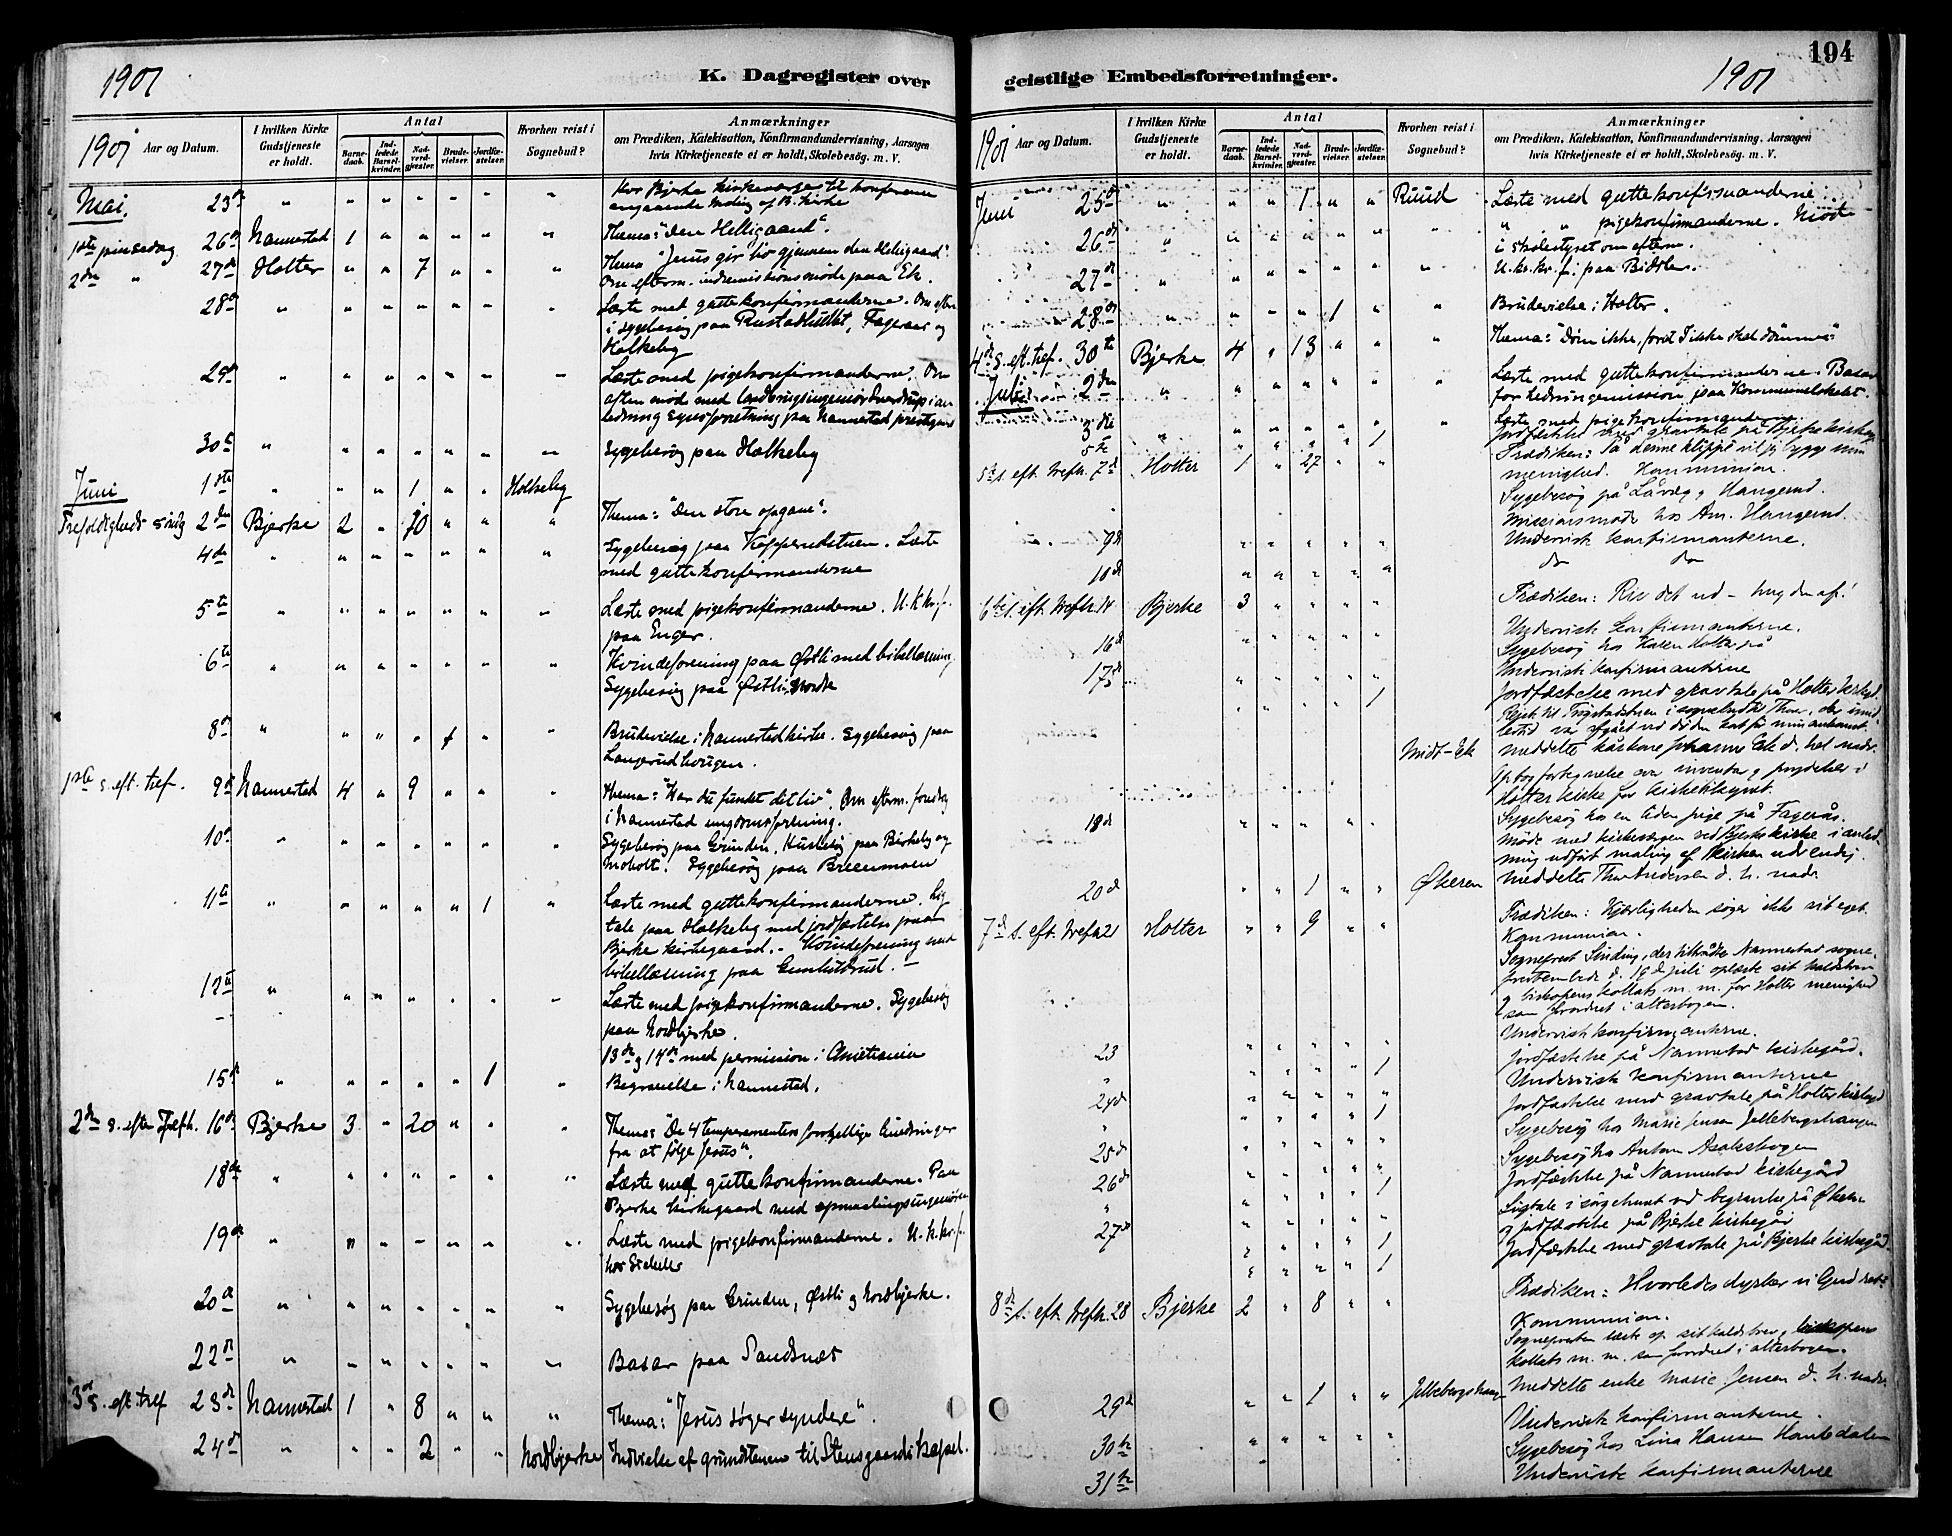 1901
K. Dagregister over
1901 Aar og Datum.
I hvilken Kirke Gudstjeneste er holdt.
Antal
Barnedaab.
Indledede Barselkvinder.
Nadverdgjæster.
Brudevielser.
Jordfæstelser.
Hvorhen reist i Sognebud?
Anmærkninger
om Prædiken, Katekisation, Konfirmandundervisning, Aarsagen
hvis Kirketjeneste ei er holdt, Skolebesøg. m. V.
Mai. 23de " " " " " " " Hos Bjerke kirkeværge til konferense
angaaende maling af B. kirke
1ste pinsedag 26de Nannestad 1 " " " " " Thema: "Den Helligaand".
2den " 27de Holter " " 7 " " " Thema "Jesus gir liv gjennem den Helligaand".
Om efterm. indremissionsmøde paa Ek.
28de " " " " " " " Læste med guttekonfirmanderne. Om efterm.
i sygebesøg paa Rustadhullet, Fageraas og
Holkeby
29de " " " " " " " Læste med pigekonfirmanderne. Om
aften møde med landbrugsingeniør i an-
ledning synsforretning paa Nannestad prestegaard
30te " " " " " " " Sygebesøg paa Holkeby
Juni 1ste " " " 1 " " Holkeby
Trefoldigheds søndg 2den Bjerke 2 " 10 " " " Thema: "Den store opgave".
4de " " " " " " " Sygebesøg paa Kopperudstuen. Læste
med guttekonfirmanderne
5te " " " " " " " Læste med pigekonfirmanderne. U.K.kr.f.
paa Enger.
6te " " " " " " " Kvindeforening paa Østli med bibellæsning.
Sygebesøg paa Østli nordre
8de " " " " 1 " " Brudevielse i Nannestad kirke. Sygebesøg paa
Langerudhougen.
1ste s. eft. tref. 9de Nannestad 4 " 9 " " " Thema: "Har du fundet dit liv". Om efterm. foredrag
i Nannestad ungdomsforening.
10de " " " " " " " Sygebesøg paa Grinden, Husbesøg paa Birkeby og
Moholt. Sygebesøg paa Breenmoen
11te " " " " " 1 " Læste med guttekonfirmanderne. Lig-
tale paa Holkeby med jordfæstelse paa
Bjerke kirkegaard. - Kvindeforening med
bibellæsning paa Gunhildrud. -
12te " " " " " " " Læste med pigekonfirmanderne. Sygebesøg
paa Nordbjerke.
13de og 14de med permission i Christiania
15de " " " " " 1 " Begravelse i Nannestad.
2den s. efter Trefh. 16de Bjerke 3 " 20 " " " Thema: De 4 temperamenters forskjellige hindringer
fra at følge Jesus".
18de " " " " " " " Læste med guttekonfirmanderne. Paa
Bjerke kirkegaard med opmaalingsingeniøren
19de " " " " " " " Læste med pigekonfirmanderne. U.k.kr.f.
hos
20de " " " " " " " Sygebesøg paa Grinden, Østli og Nordbjerke.
22de " " " " " " " Basar paa Sandsnes
3de s. eft. tref 23de Nannestad 1 " 8 " " " Thema: "Jesus søger syndere".
24de " " " 2 " " Nordbjerke Indvielse af grundstenen til Stensgaards kapel.
194
geistlige Embedsforretninger.
1901
1901 Aar og Datum.
I hvilken Kirke Gudstjeneste er holdt.
Antal
Barnedaab.
Indledede Barselkvinder.
Nadverdgjæster.
Brudevielser.
Jordfæstelser.
Hvorhen reist i Sognebud?
Anmærkninger
om Prædiken, Katekisation, Konfirmandundervisning, Aarsagen
hvis Kirketjeneste ei er holdt, Skolebesøg. m. V.
Juni 25de " " " 1 " " Ruud Læste med guttekonfirmanderne
26de " " " " " " " " " pigekonfirmanderne. Møde
i skolestyret om efterm.
27de " " " " " " " U.kv.kr.f. paa
28de " " " " 1 " " Brudevielse i Holter.
4de s. eft. tref. 30te Bjerke 4 " 13 " " " Thema: "Døm ikke, forat I ikke skal dømmes"
Juli 2den " " " " " " " Læste med guttekonfirmanderne. Basar
for hedningemissionen paa Kommunelokalet.
3die " " " " " " " Læste med pigekonfirmanderne
5te " " " " 1 Jordfæstelse med gravtale på Bjerke kirkeg.
5te s. eft. trefh. 7de Holter 1 " 27 " " Prædiken: På denne klippe vil jeg bygge min
menighed. Kommunion.
Sygebesøg på Låvæg, Haugerud.
Missionsmøde hos Am. Haugerud.
9de " " " " " Underviste konfirmanterne.
10de " " " " " do do
6te s. eft. trefh. 14 Bjerke 3 " " " " Prædiken: Riv det ud - hug den af!
16de " " " " " Underviste konfirmanterne.
Sygebesøg hos Karen Holter på
17de " " " " " Underviste konfirmanterne
" " " " 1 Jordfæstelse med gravtale på Holter kirkegd.
Reiste til i sognebud til Thor, der imid-
lertid var afgået ved døden kort før min ankomst.
Midt-Ek meddelte kårkone Johanne Ek d. hel. nadv.
Optog fortegnelse over inventar og prydelser i
Holter kirke for kirketilsynet.
18de " " " " " Sygebesøg hos en liden pige på Fagerås.
Møde med kirkeværgen ved Bjerke kirke i anled-
ning udført maling af kirken udvendig.
20de " " 1 " " Økeren meddelte Thor Andersen d. h. nadv.
7de s. eft. trefh. 21 Holter " " 9 " " Prædiken: Kjærligheden søger ikke sit eget.
Kommunion.
Sogneprest Sinding, der tiltrådte Nannestad sogne-
prestembede d. 19de juli oplæste sit kaldsbrev
og biskopens kollats m. m. for Holter menighed
som forordnet i alterbogen.
23 " " " " " Underviste konfirmanterne.
" " " " " 1 Jordfæstelse på Nannestad kirkegård.
24de " " " " " Underviste konfirmanterne
" " " " " 1 Jordfæstelse med gravtale på Holter kirkegd
Sygebesøg hos Marie Jensen Jellebergshaugen
25de " " " " " Sygebesøg hos Anton Asakshagen
26de " " " " 1 Jordfæstelse på Nannestad kirkegård
" Ligtale i sørgehuset ved begravelse på Økeren
27de " " " " 1 og jordfæstelse på Bjerke kirkegår
" " " " 1 Jordfæstelse med gravtale på Bjerke kirkegård
8de s. eft. trefh. 28 Bjerke 2 " 8 " " Prædiken: Hvorledes dyrker vi Gud ret?
Kommunion.
Sognepresten læste op sit kaldsbrev, biskopens
kollats m. m. som forordnet i alterbogen.
29de " " 1 " " Jellebergshaug meddelte enke Marie Jensen d. h. nadv.
Underviste konfirmanterne.
30te " " " " " Sygebesøg hos Lina Hansen
31te Underviste konfirmanterne